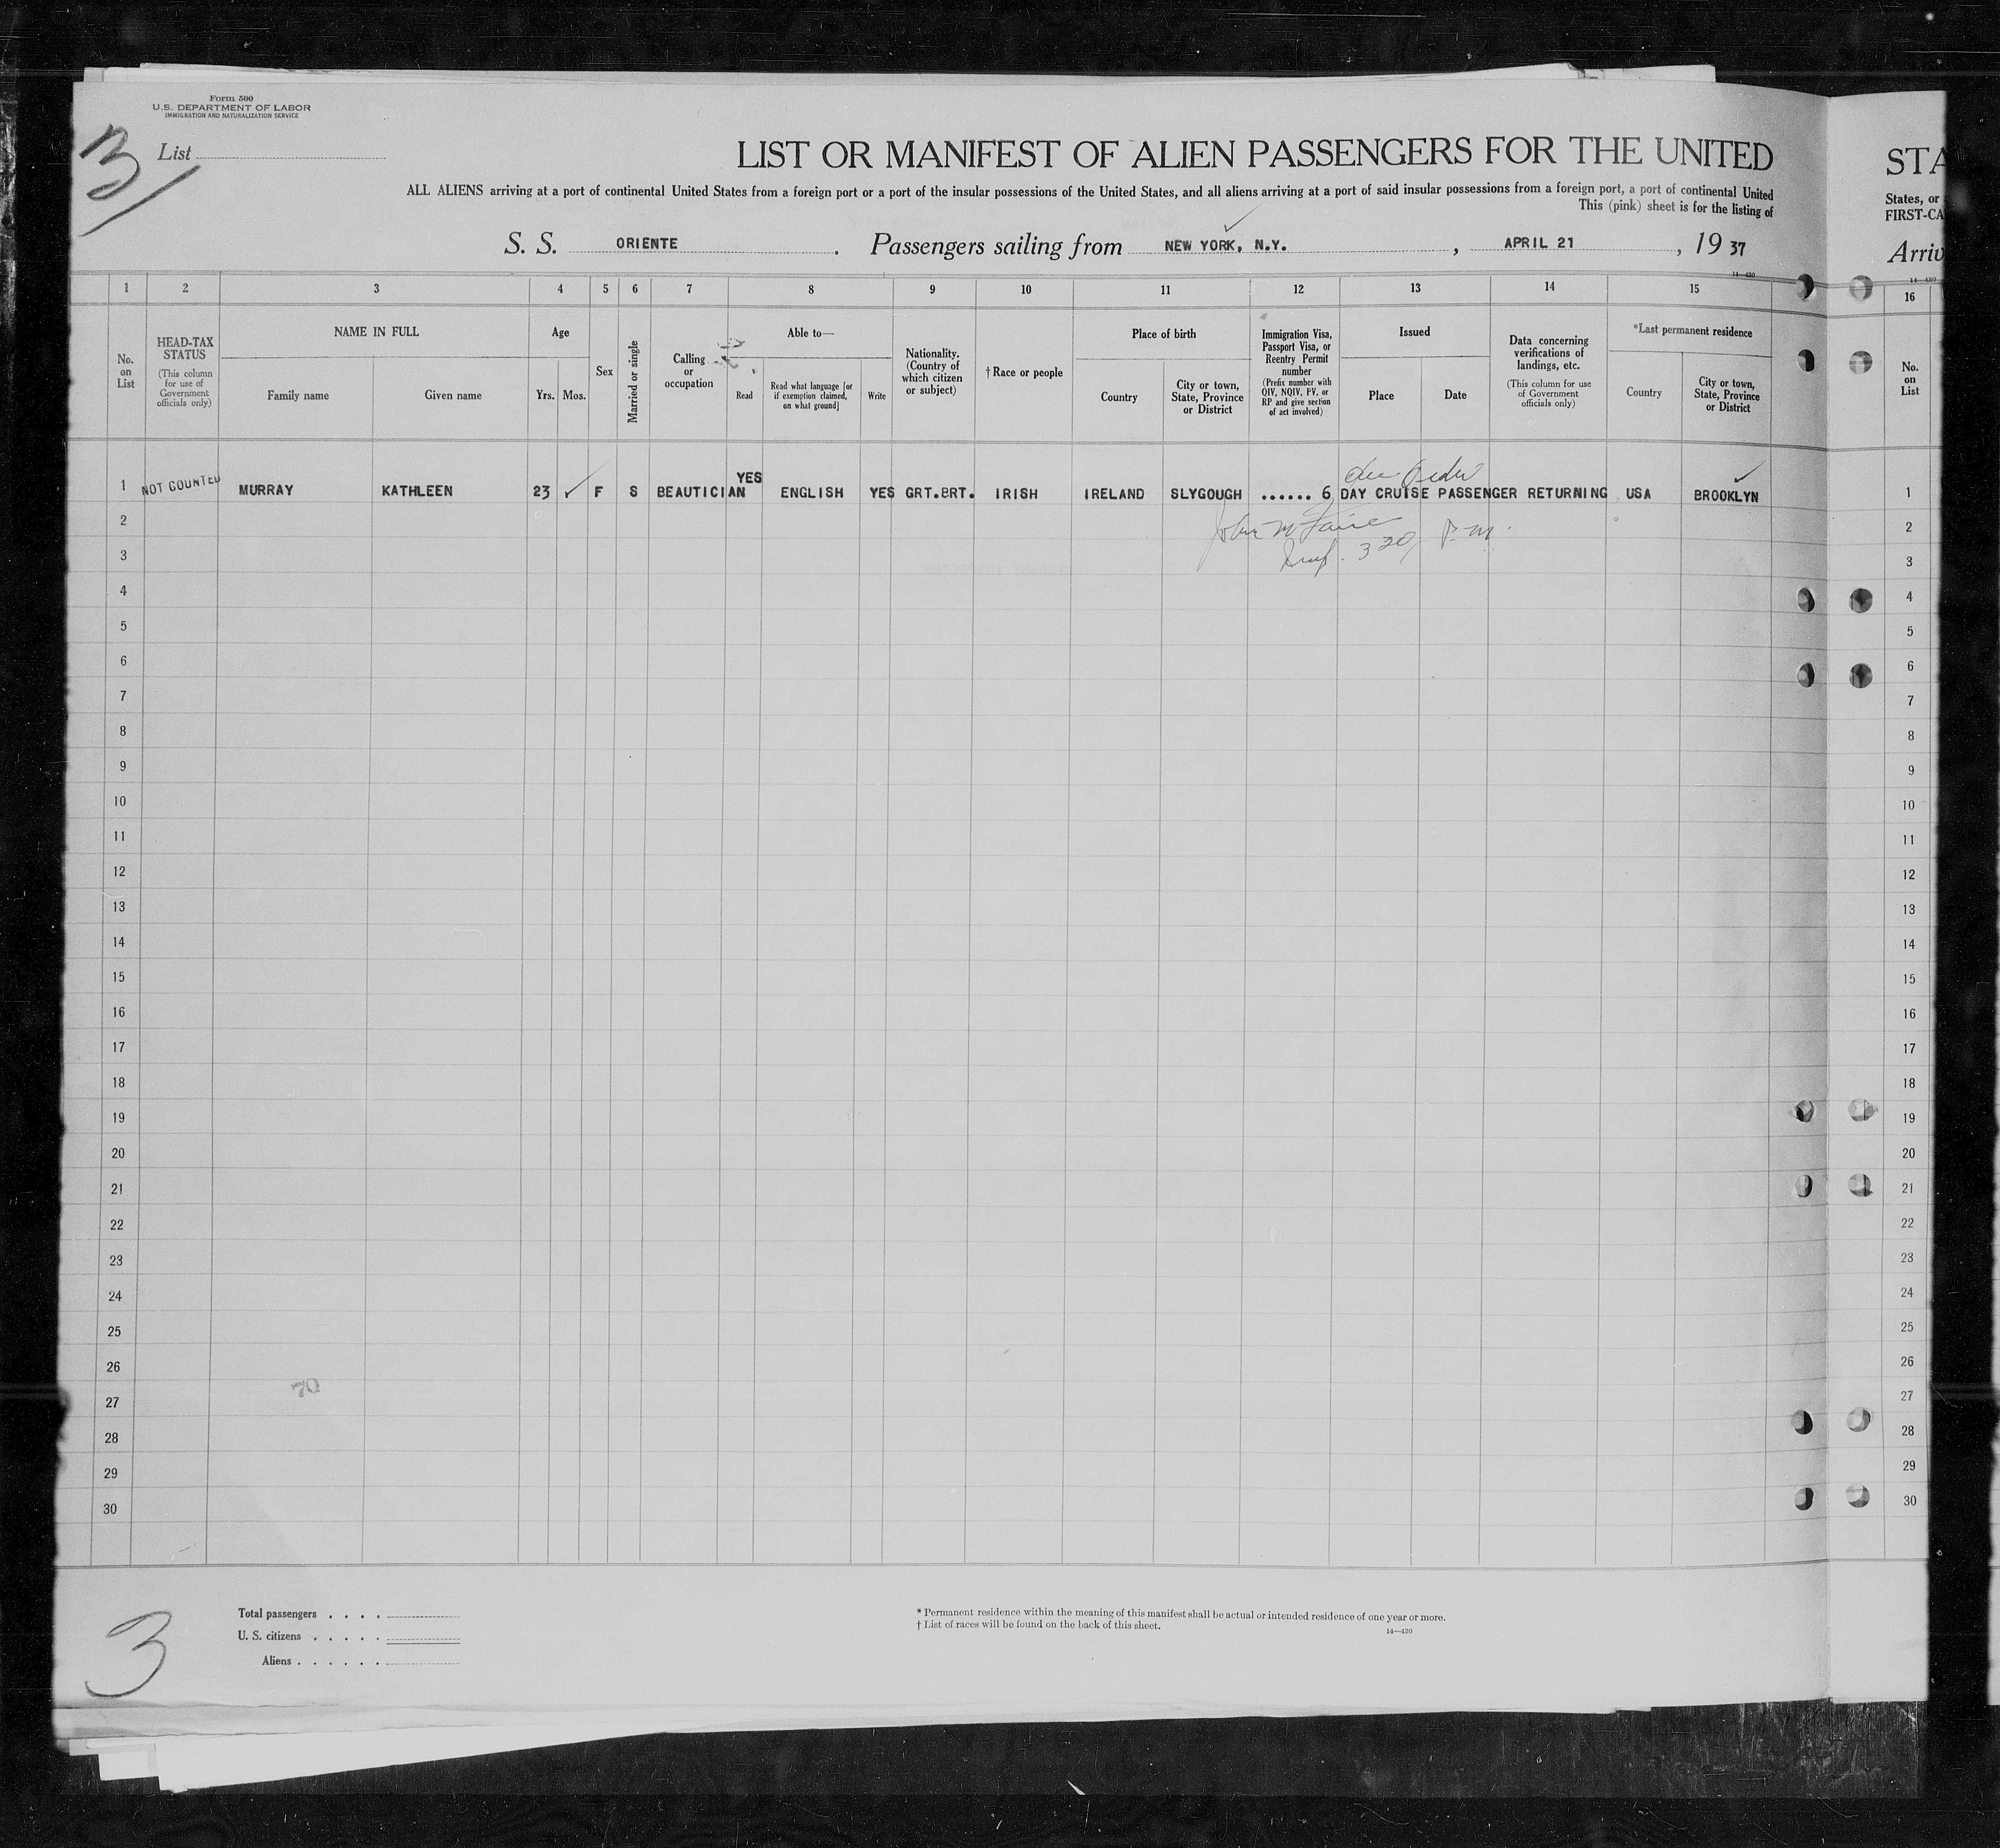 Form 500
U.S. DEPARTMENT OF LABOR
IMMIGRATION AND NATURALIZATION SERVICE
3
List
LIST OR MANIFEST OF ALIEN PASSENGERS FOR THE UNITED
STA
ALL ALIENS arriving at a port of continental United States from a foreign port or a port of the insular possessions of the United States, and all aliens arriving at a port of said insular possessions from a foreign port, a port of continental United
States, or
This (pink) sheet is for the listing of
FIRST-CA
S. S. ORIENTE. Passengers sailing from NEW YORK, N.Y., APRIL 21, 19 37
Arriv
14—430
14—430
1 2 3 4 5 6 7 8 9 10 11 12 13 14 15
16
No. on List
HEAD-TAX STATUS (This column for use of Government officials only)
NAME IN FULL
Family name
Given name
Age
Yrs.
Mos.
Sex
Married or single
Calling or occupation
Able to—
Read
Read what language [or if exemption claimed, on what ground]
Write
Nationality. (Country of which citizen or subject)
†Race or people
Place of birth
Country
City or town, State, Province or District
Immigration Visa, Passport Visa, or Reentry Permit number (Prefix number with QIV, NQIV, PV, or RP and give section of act involved)
Issued
Place
Date
Data concerning verifications of landings, etc. (This column for use of Government officials only)
*Last permanent residence
Country
City or town, State, Province or District
No. on List
1 NOT COUNTED MURRAY KATHLEEN 23 F S BEAUTICIAN YES ENGLISH YES GRT.BRT. IRISH IRELAND SLYGOUGH ...... 6 DAY CRUISE PASSENGER RETURNING USA BROOKLYN 1
2 2
John M
3 3
320 P.M.
4 4
5 5
6 6
7 7
8 8
9 9
10 10
11 11
12 12
13 13
14 14
15 15
16 16
17 17
18 18
19 19
20 20
21 21
22 22
23 23
24 24
25 25
26 26
70
27 27
28 28
29 29
30 30
3
Total passengers . . . .
U. S. citizens . . . . .
Aliens . . . . . .
* Permanent residence within the meaning of this manifest shall be actual or intended residence of one year or more.
† List of races will be found on the back of this sheet.
14—430